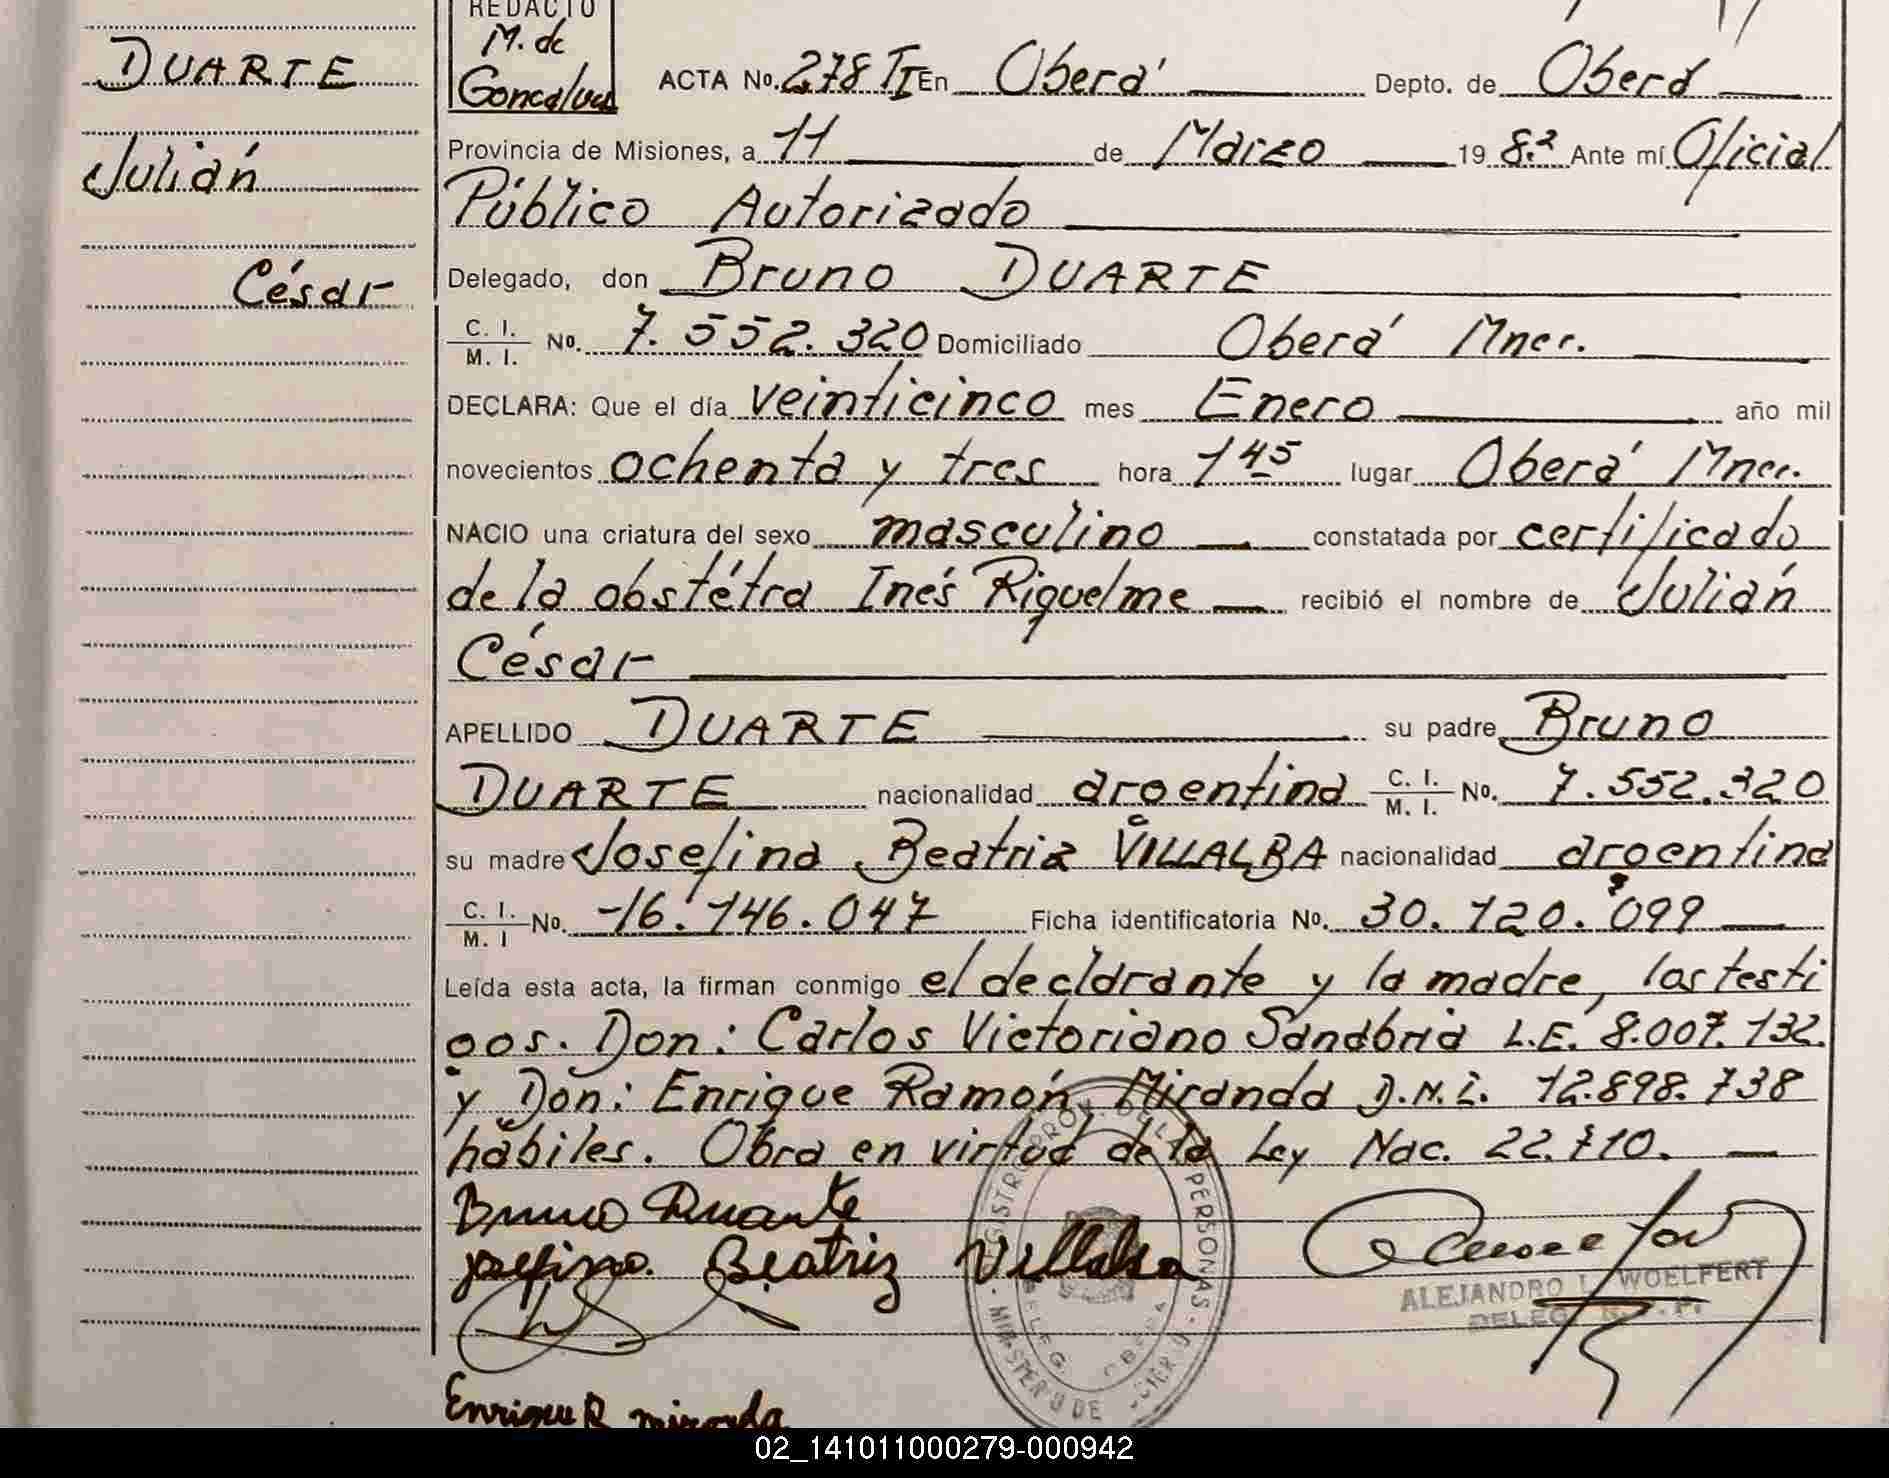 DUARTE
Julián
César
REDACTO
M. de
Goncalves
ACTA No. 278 TI En Oberá Depto. de Oberá
Provincia de Misiones, a 11 de Marzo 19 83 Ante mí Oficial
Público Autorizado
Delegado, don Bruno DUARTE
C. I. / M. I. No. 7.552.320 Domiciliado Oberá Mnes.
DECLARA: Que el día veinticinco mes Enero año mil
novecientos ochenta y tres hora 145 lugar Oberá Mnes.
NACIO una criatura del sexo masculino constatada por certificado
de la obstétra Inés Riquelme recibió el nombre de Julián
César
APELLIDO DUARTE su padre Bruno
DUARTE nacionalidad argentina C. I. / M. I. No. 7.552.320
su madre Josefina Beatriz VILLALBA nacionalidad argentina
C. I. / M. I No. 16.146.047 Ficha identificatoria No. 30.120.099
Leída esta acta, la firman conmigo el declarante y la madre, los testi
gos. Don: Carlos Victoriano Sanabria L.E. 8.007.132.
y Don: Enrique Ramón Miranda D.N.I. 12.898.738
hábiles. Obra en virtud de la Ley Nac. 22.710.
Bruno Duarte
Josefina Beatriz Villalba
ALEJANDRO L. WOELFERT
DELEG.
REGISTRO PROV. DE LAS PERSONAS - MINISTERIO DE
DELEG. OBERA
Enrique R miranda
02_141011000279-000942